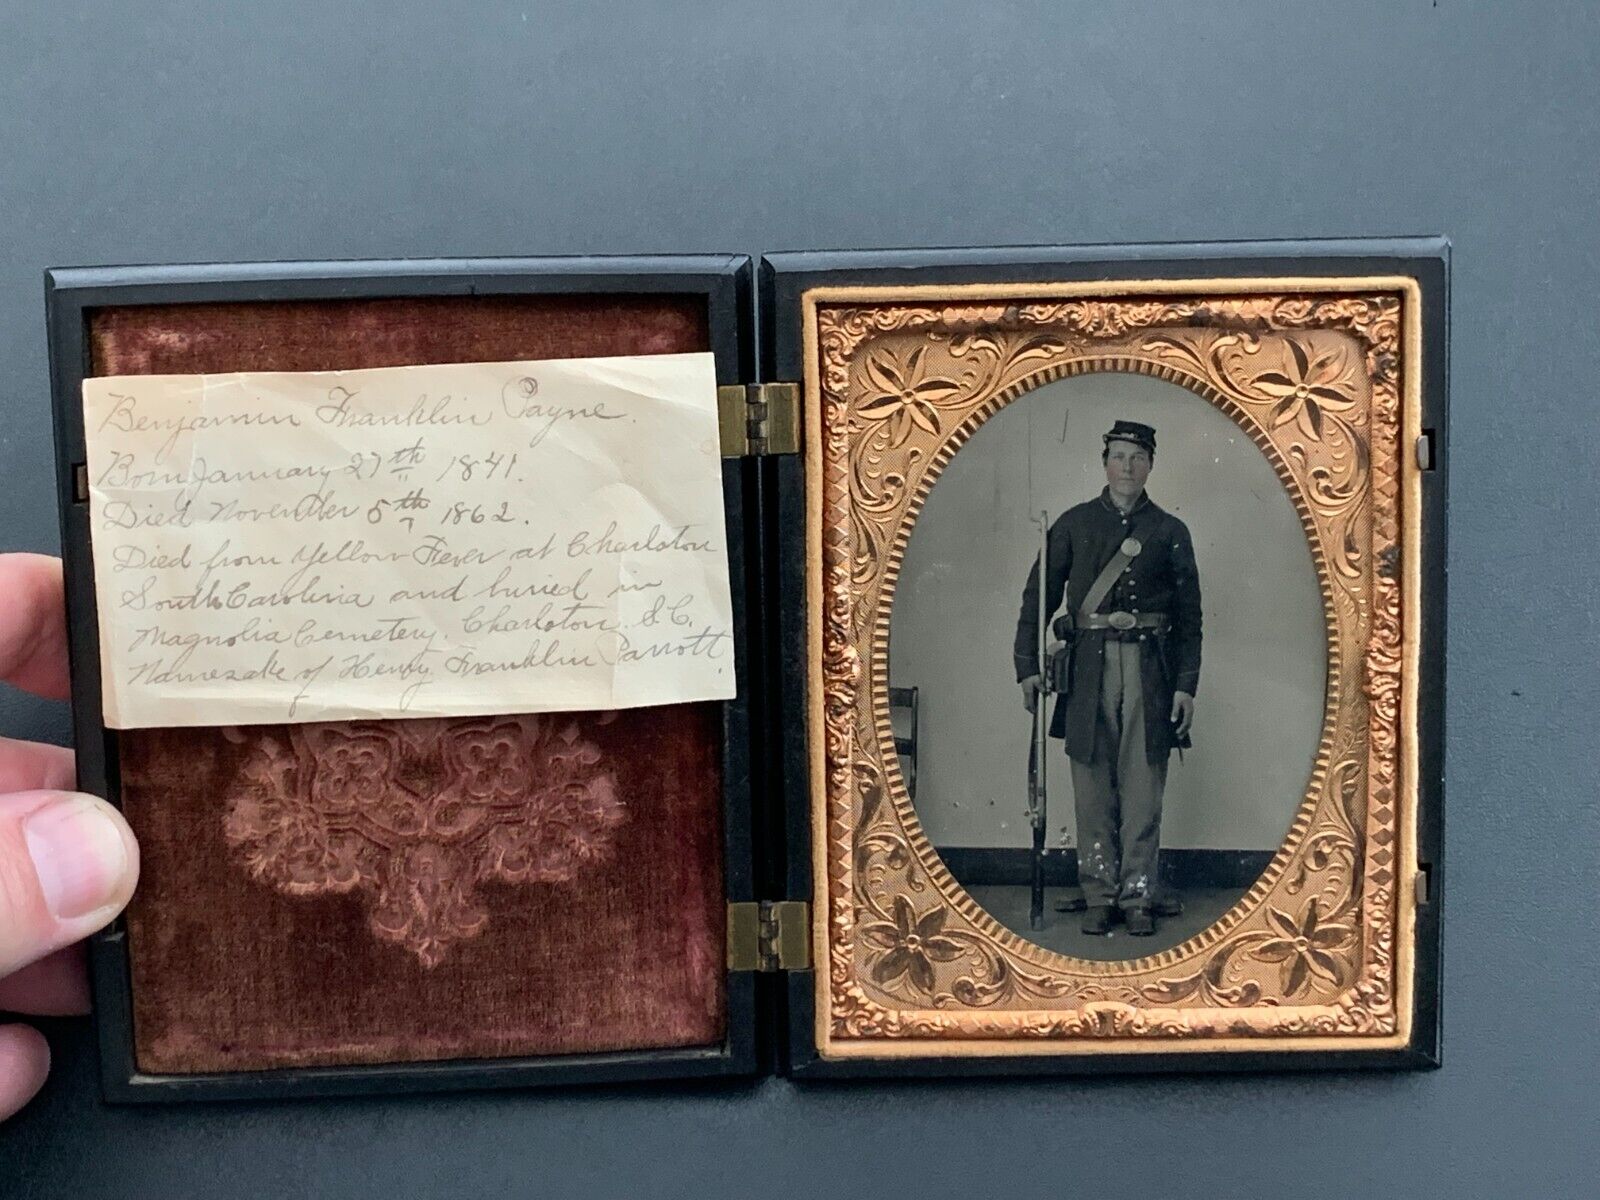 Benjamin Franklin Payne.
Born January 27th 1841.
Died November 5th 1862.
Died from Yellow Fever at Charlston
South Carolina and buried in
Magnolia Cemetery. Charlston. S.C.
Namesake of Henry Franklin Parrott.